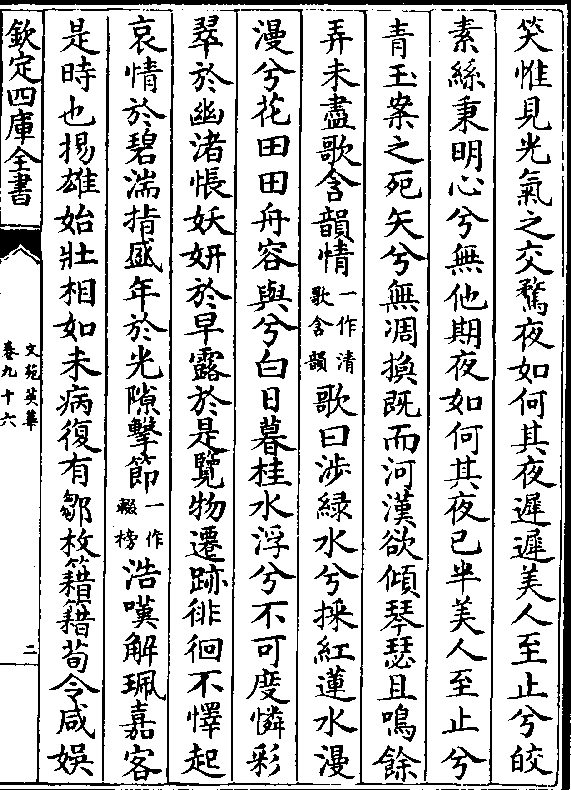 笑惟見光氣之交騖夜如何其夜遲遲美人至止兮皎
素絲秉明心兮無他期夜如何其夜已半美人至止兮
青玉案之死矢兮無凋換既而河漢欲傾琴瑟且鳴餘
弄未盡歌含韻情一作清歌含韻歌曰涉綠水兮採紅蓮水漫
漫兮花田田舟容與兮白日暮桂水浮兮不可度憐彩
翠於幽渚悵妖妍於早露於是覽物遷跡徘徊不懌起
哀情於碧湍指盛年於光隙擊節一作輟榜浩嘆解珮嘉客
是時也揚雄始壯相如未病復有鄒枚籍籍荀令咸娛
欽定四庫全書
文苑英華
卷九十六
二